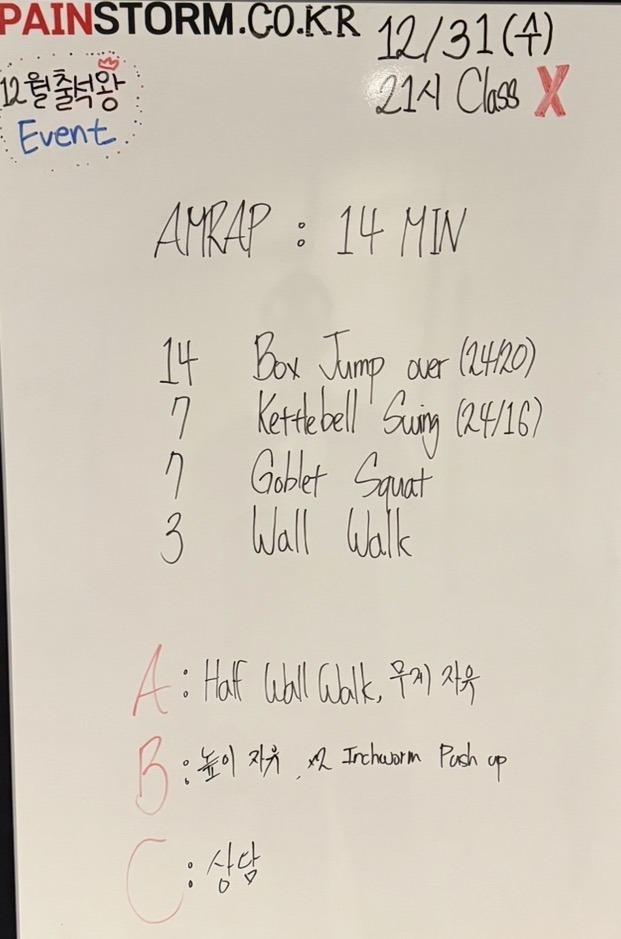 PAINSTORM.CO.KR
12/31(수)
21시 Class X
12월 출석왕
Event
AMRAP : 14 MIN
14 Box Jump over (24/20)
7 Kettlebell Swing (24/16)
7 Goblet Squat
3 Wall Walk
A : Half Wall Walk, 무게 자유
B : 높이 자유, x2 Inchworm Push up
C : 상담